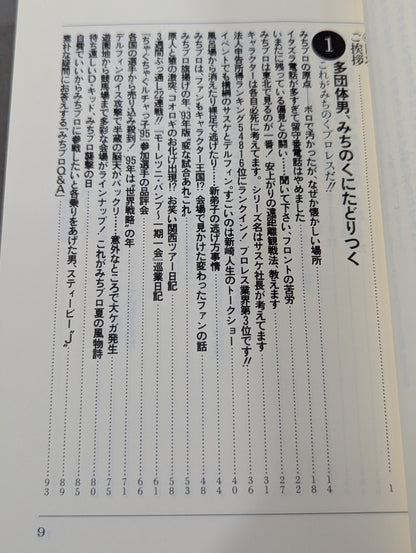 ご挨拶……1
1 多団体男、みちのくにたどりつく
これがみちのくプロレスだ!!
みちプロの原点――ボロで汚かったが、なぜか懐かしい場所……14
イタズラ電話が多すぎて留守番電話はやめました……18
いまだに残っている偏見との闘い……聞いて下さい、フロントの苦労……22
みちプロは東北で見るのが一番! 安上がりの遠距離観戦法、教えます……27
キャラクターは各自必死に考えてます。シリーズ名はサスケ社長が考えてます……31
法人申告所得ランキング5486位にランクイン! プロレス業界第3位です!!……36
イベントでも横綱のサスケとデルフィン。すごいのは新崎人生のトークショー……40
風呂場から消えたり裸足で逃げたり……新弟子の逃げ方事情……44
みちプロは、「ファンもキャラクター王国!?」会場で見かけた変わったファンの話……48
みちプロ旗揚げの年、'93年版「変な試合あれこれ……53
原人、猿の激突、コオロギのお化け出現!? お笑い関西ツアー日記……58
3週間ぶっ通し22連戦!/「モーレツ!バンプ〜一期一会」巡業日記……61
「ちゃぐちゃぐ チャ'95」参加選手の品評会……66
各国の選手から売り込み殺到! '95年は「世界戦略」の年……71
デルフィンのイス攻撃で半蔵の脳天がバックリ! 意外なところで大ケガ発生……75
遊園地から競馬場まで多彩な会場がラインナップ! これがみちプロ夏の風物詩……80
待ち遠しいD・キッド、みちプロ襲撃の日……85
自費でいいからみちプロに参戦したいと名乗りをあげた男、スティービー"J"……89
素朴な疑問にお答えする「みちプロQ&A」……93
9